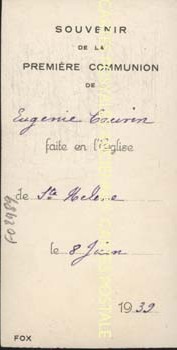 SOUVENIR
DE LA
PREMIÈRE COMMUNION
DE
Eugénie
faite en l'Eglise
de Ste Helene
le 8 Juin
1939
FOX
FO2989